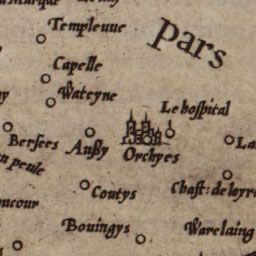 Templeuue
Pars
Capelle
Wateyne
Le hospital
Bersees
Außy
Orchyes
La
en peule
Coutys
Chast: de loyre
oucour
Bouingys
Warelaing